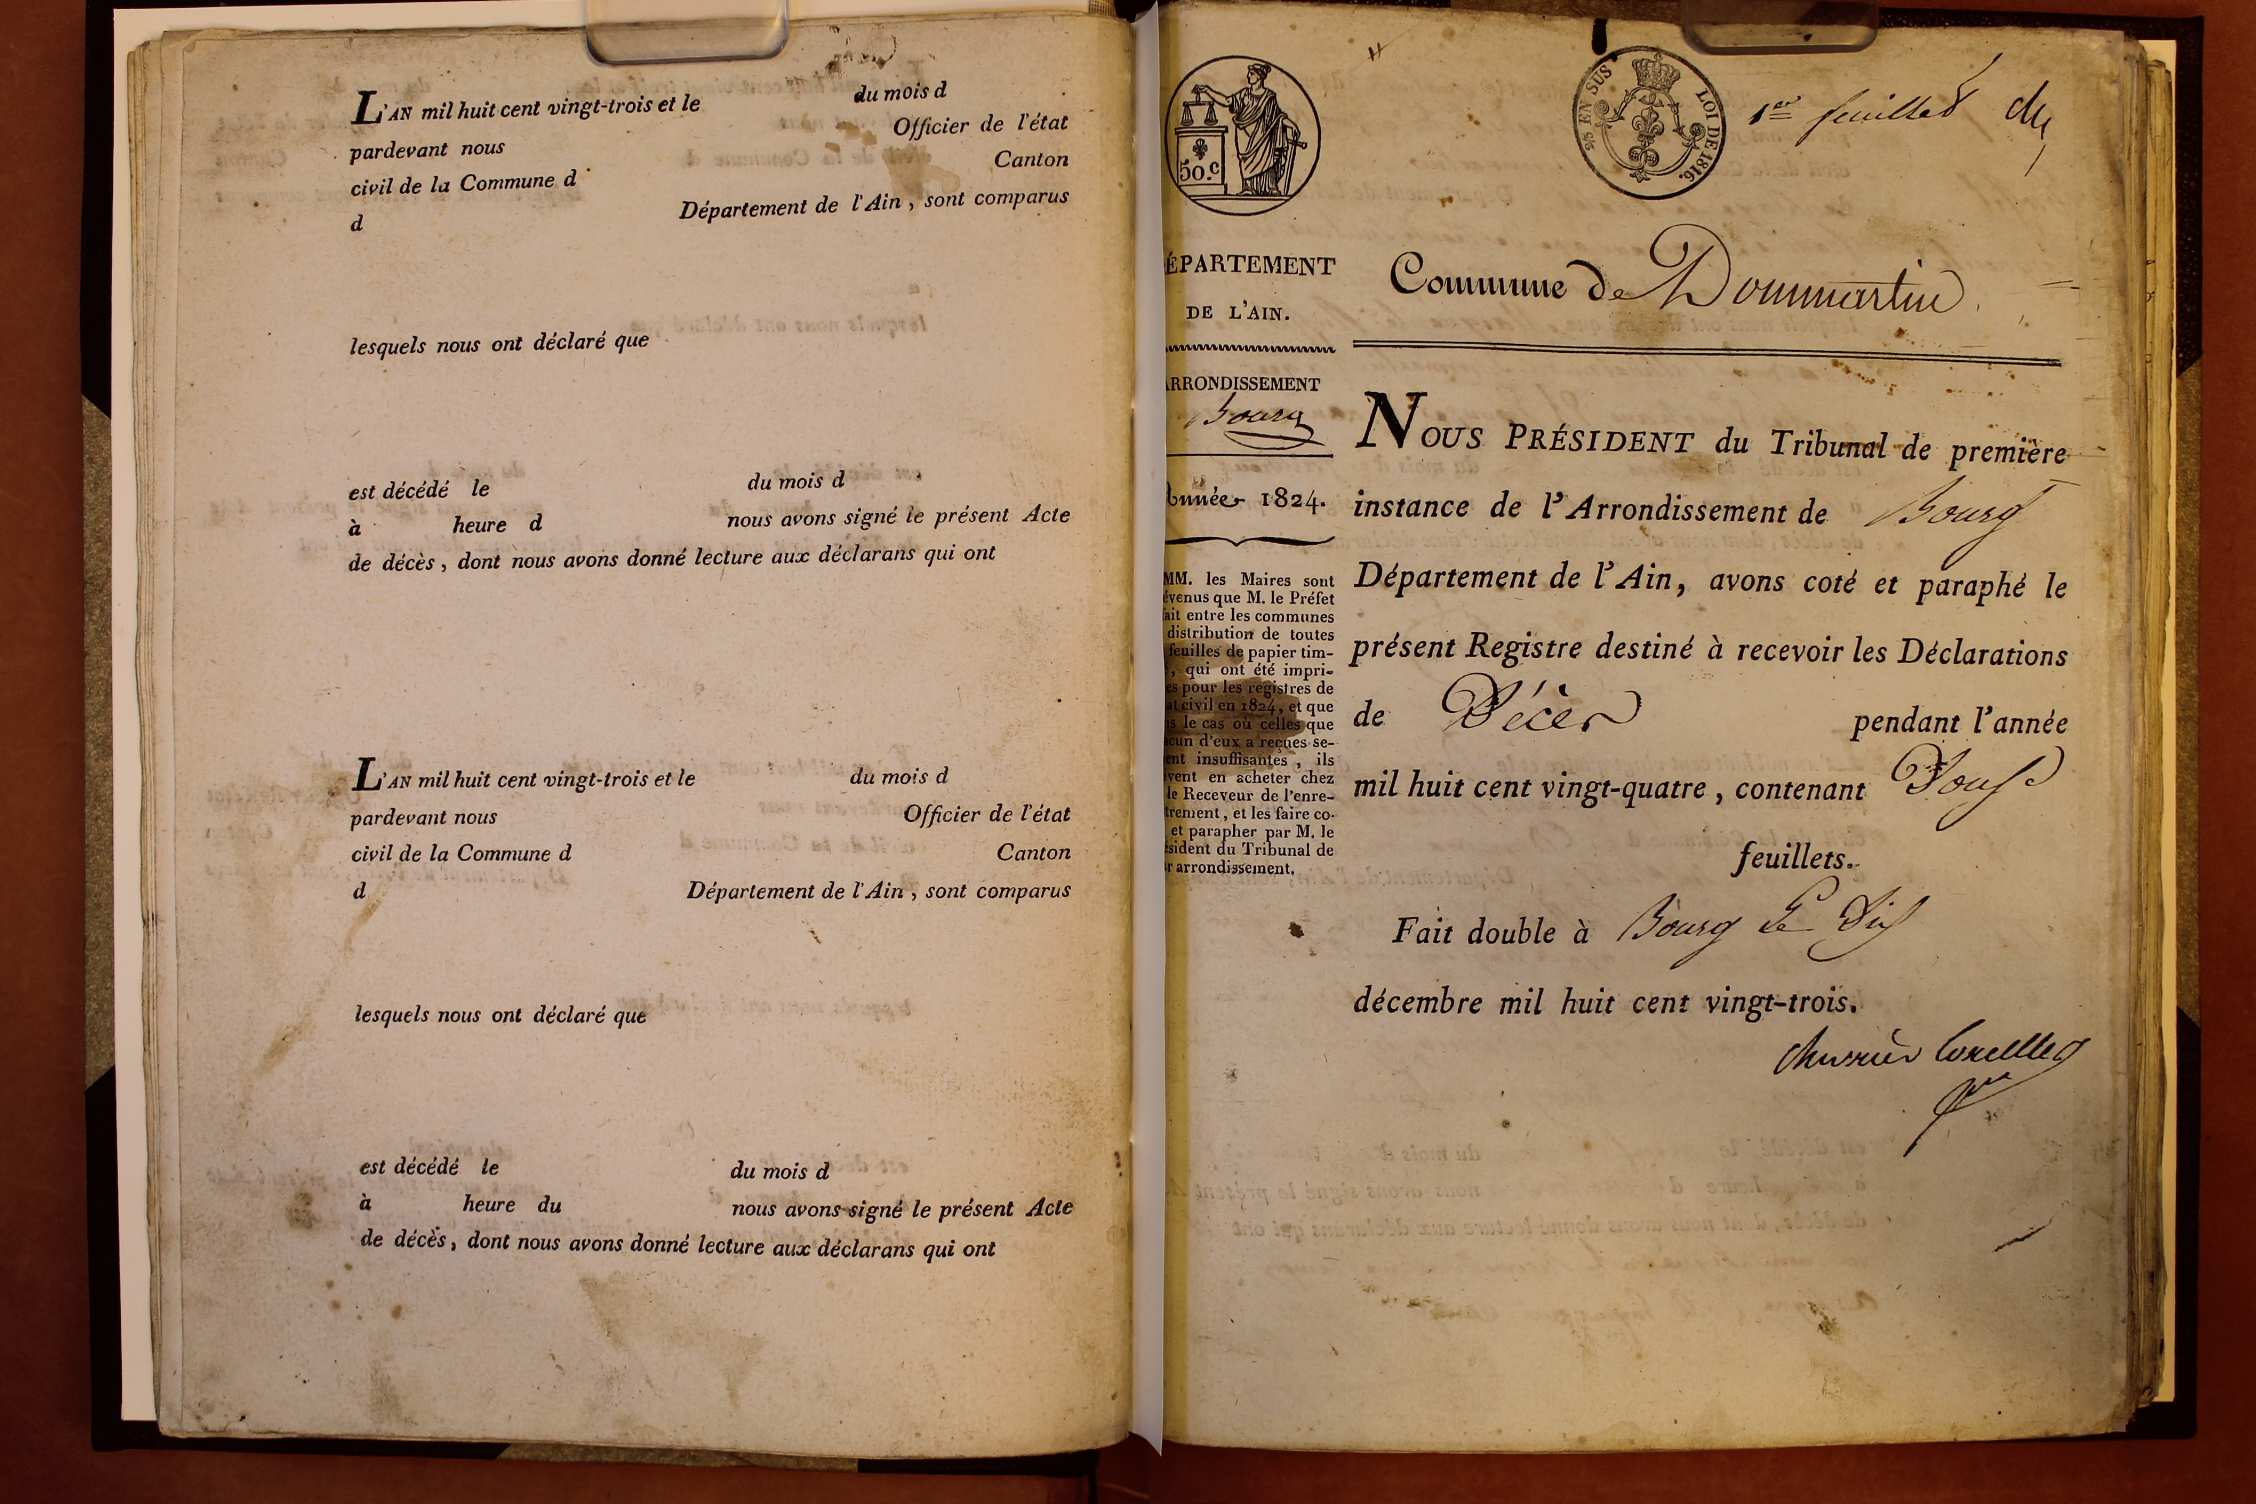 L'AN mil huit cent vingt-trois et le du mois d
pardevant nous Officier de l'état
civil de la Commune d Canton
d Département de l'Ain, sont comparus
lesquels nous ont déclaré que
est décédé le du mois d
à heure d nous avons signé le présent Acte
de décès, dont nous avons donné lecture aux déclarans qui ont
L'AN mil huit cent vingt-trois et le du mois d
pardevant nous Officier de l'état
civil de la Commune d Canton
d Département de l'Ain, sont comparus
lesquels nous ont déclaré que
est décédé le du mois d
à heure du nous avons signé le présent Acte
de décès, dont nous avons donné lecture aux déclarans qui ont
50.c
2/5 EN SUS LOI DE 1816.
1er feuillet
ÉPARTEMENT
DE L'AIN.
ARRONDISSEMENT
Bourg
Année 1824.
MM. les Maires sont
évenus que M. le Préfet
fait entre les communes
distribution de toutes
feuilles de papier tim-
, qui ont été impri-
es pour les registres de
at civil en 1824, et que
s le cas où celles que
acun d'eux a reçues se-
ent insuffisantes, ils
vent en acheter chez
le Receveur de l'enre-
trement, et les faire co-
et parapher par M. le
ésident du Tribunal de
r arrondissement.
Commune de Dommartin
NOUS PRÉSIDENT du Tribunal de première
instance de l'Arrondissement de Bourg
Département de l'Ain, avons coté et paraphé le
présent Registre destiné à recevoir les Déclarations
de Décès pendant l'année
mil huit cent vingt-quatre, contenant Douse
feuillets.
Fait double à Bourg le Dix
décembre mil huit cent vingt-trois.